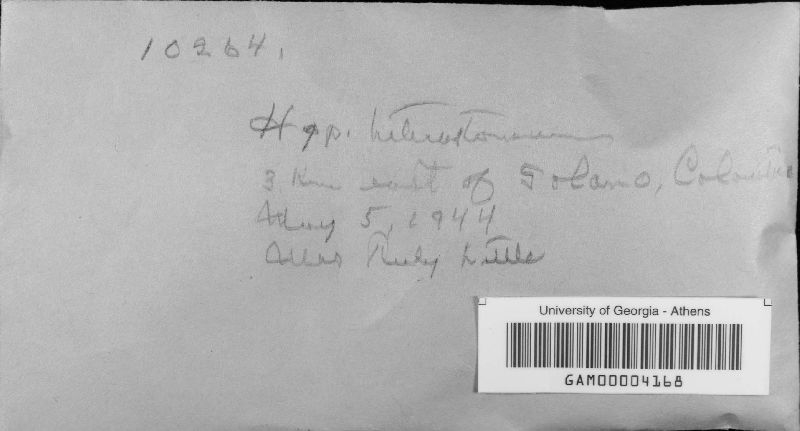 10264.
Hyp. heterostomum
3 Km east of Solano, Colombia
May 5, 1944
Miss Ruby Little
University of Georgia - Athens
GAM00004168